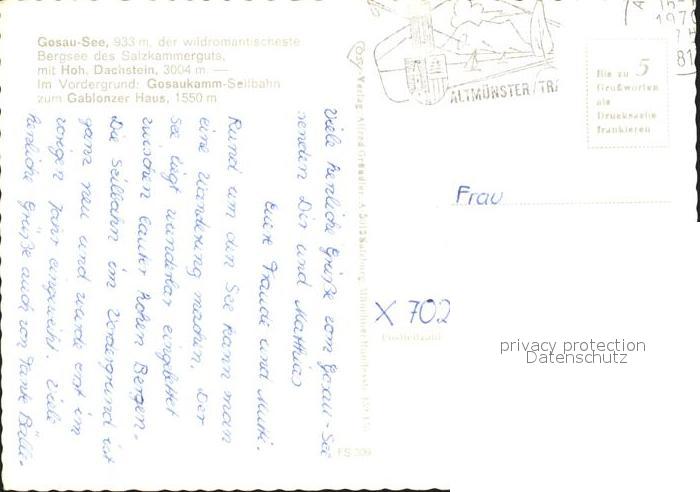 Gosau-See, 933 m, der wildromantischeste
Bergsee des Salzkammerguts,
mit Hoh. Dachstein, 3004 m —
Im Vordergrund: Gosaukamm-Seilbahn
zum Gablonzer Haus, 1550 m
ALTMÜNSTER/TR
Bis zu 5
Grußworten
als
Drucksache
frankieren
Viele herzliche Grüße vom Gosau-See
senden Dir und Matthias
Eure Traude und Mutti.
Rund um den See kann man
eine Wanderung machen. Der
See liegt wunderbar eingebettet
zwischen lauter hohen Bergen.
Die Seilbahn im Vordergrund ist
ganz neu und wurde erst im
vorigen Jahr eingeweiht. Viele
herzliche Grüße auch von Tante
Frau
X 702
Postleitzahl
FS 309
privacy protection
Datenschutz